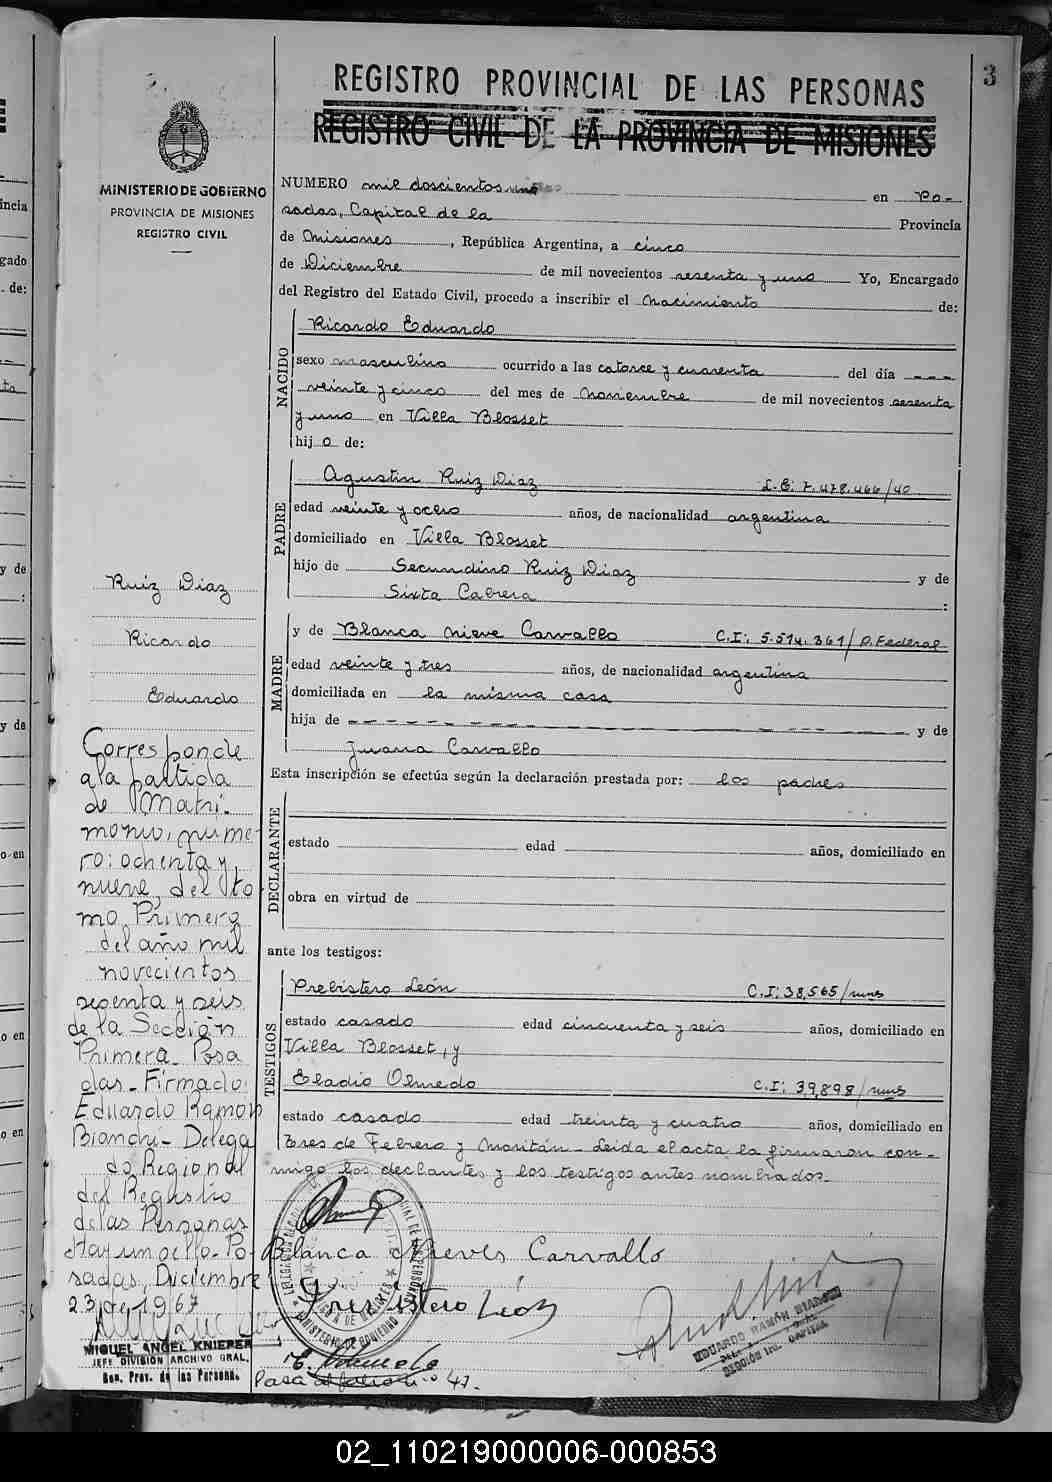 3
REGISTRO PROVINCIAL DE LAS PERSONAS
REGISTRO CIVIL DE LA PROVINCIA DE MISIONES
MINISTERIO DE GOBIERNO
PROVINCIA DE MISIONES
REGISTRO CIVIL
NUMERO mil doscientos uno en Po-
sadas, Capital de la Provincia
de Misiones, República Argentina, a cinco
de Diciembre de mil novecientos sesenta y uno Yo, Encargado
del Registro del Estado Civil, procedo a inscribir el Nacimiento de:
NACIDO
Ricardo Eduardo
sexo masculino ocurrido a las catorce y cuarenta del día ---
veinte y cinco del mes de Noviembre de mil novecientos sesenta
y uno en Villa Blosset
hijo de:
PADRE
Agustin Ruiz Diaz L.E: 7.478.466/40
edad veinte y ocho años, de nacionalidad argentina
domiciliado en Villa Blosset
hijo de Secundino Ruiz Diaz y de
Sixta Cabrera :
MADRE
y de Blanca Nieve Carvallo C.I: 5.514.361/P.Federal
edad veinte y tres años, de nacionalidad argentina
domiciliada en la misma casa
hija de - - - - - - - - - - - - - - y de
Juana Carvallo
Esta inscripción se efectúa según la declaración prestada por: los padres
DECLARANTE
estado edad años, domiciliado en
obra en virtud de
ante los testigos:
TESTIGOS
Prebistero León C.I: 38,565/mnes
estado casado edad cincuenta y seis años, domiciliado en
Villa Blosset, y
Eladio Olmedo C.I: 39,898/mnes
estado casado edad treinta y cuatro años, domiciliado en
tres de Febrero y Moritán - Leida el acta la firmaron con-
migo los declantes y los testigos antes nombrados.-
Blanca Nieves Carvallo
Prebistero León
E. Olmedo
EDUARDO RAMÓN BIANCHI
SECCIÓN 1ra. CAPITAL
Pasa al folio n.o 47.
Ruiz Diaz
Ricardo
Eduardo
Corresponde
a la partida
de Matri-
monio, nume-
ro: ochenta y
nueve, del to
mo Primero
del año mil
novecientos
sesenta y seis
de la Sección
Primera - Posa
das - Firmado:
Eduardo Ramon
Bianchi - Delega
do Regional
del Registro
de las Personas
Hay un sello - Po-
sadas, Diciembre
23 de 1967
MIGUEL ANGEL KNIEPER
JEFE DIVISIÓN ARCHIVO GRAL.
Reg. Prov. de las Personas
02_110219000006-000853